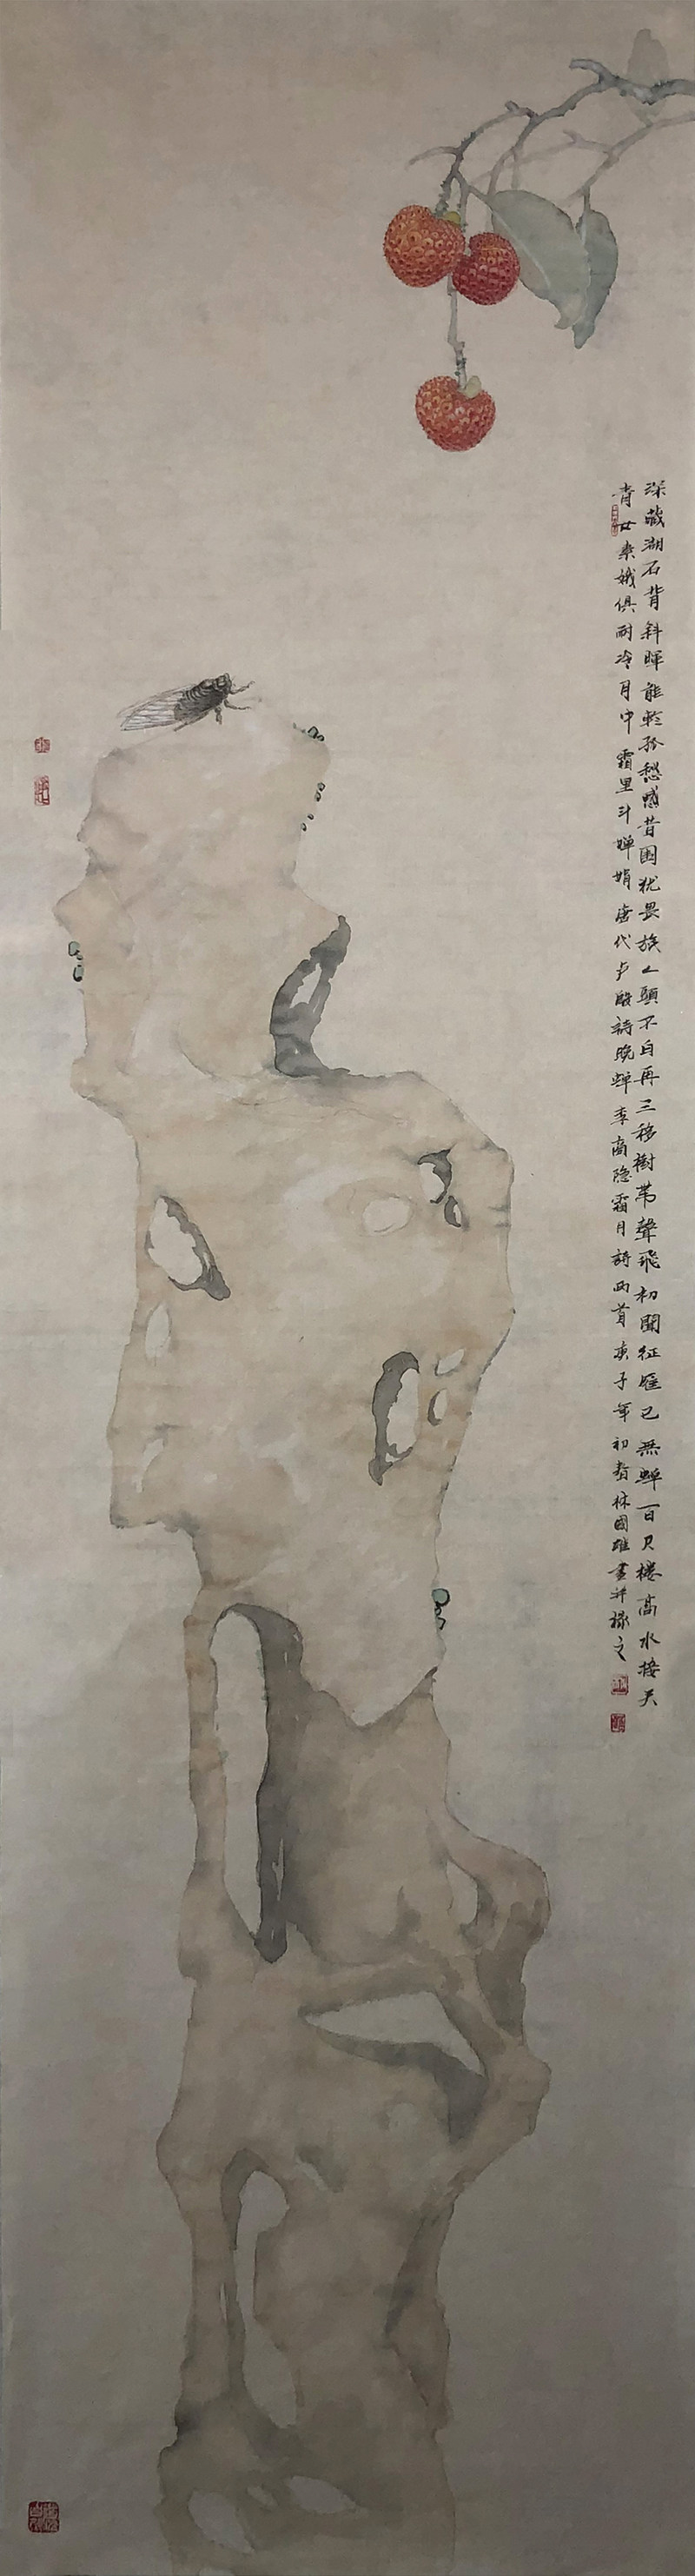 深藏湖石背斜暉能輇孙愁感昔園犹畏旅人頭不白再三移樹帯聲飛初聞征雁已無蟬百尺楼高水接天
青女素娥俱耐冷月中霜里斗婵娟唐代卢殷詩晚蝉李商隐霜月詩两首庚子年初春林國雄畫并採之